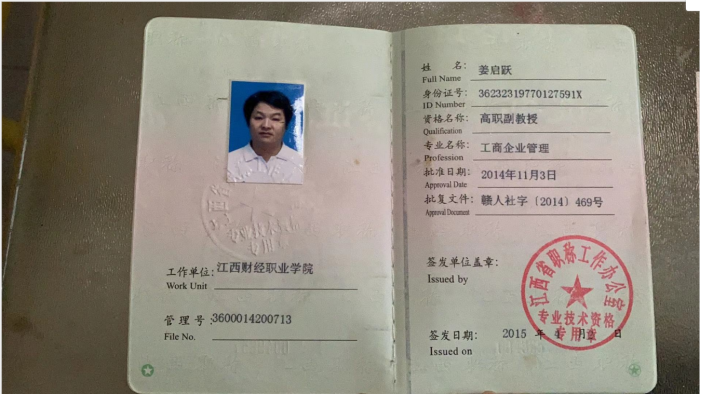 工作单位:江西财经职业学院
Work Unit
管理号:3600014200713
File No.
姓 名:姜启跃
Full Name
身份证号:36232319770127591X
ID Number
资格名称:高职副教授
Qualification
专业名称:工商企业管理
Profession
批准日期:2014年11月3日
Approval Date
批复文件:赣人社字〔2014〕469号
Approval Document
签发单位盖章:
Issued by
江西省职称工作办公室
专业技术资格
专用章
签发日期: 2015 年 4 月 日
Issued on